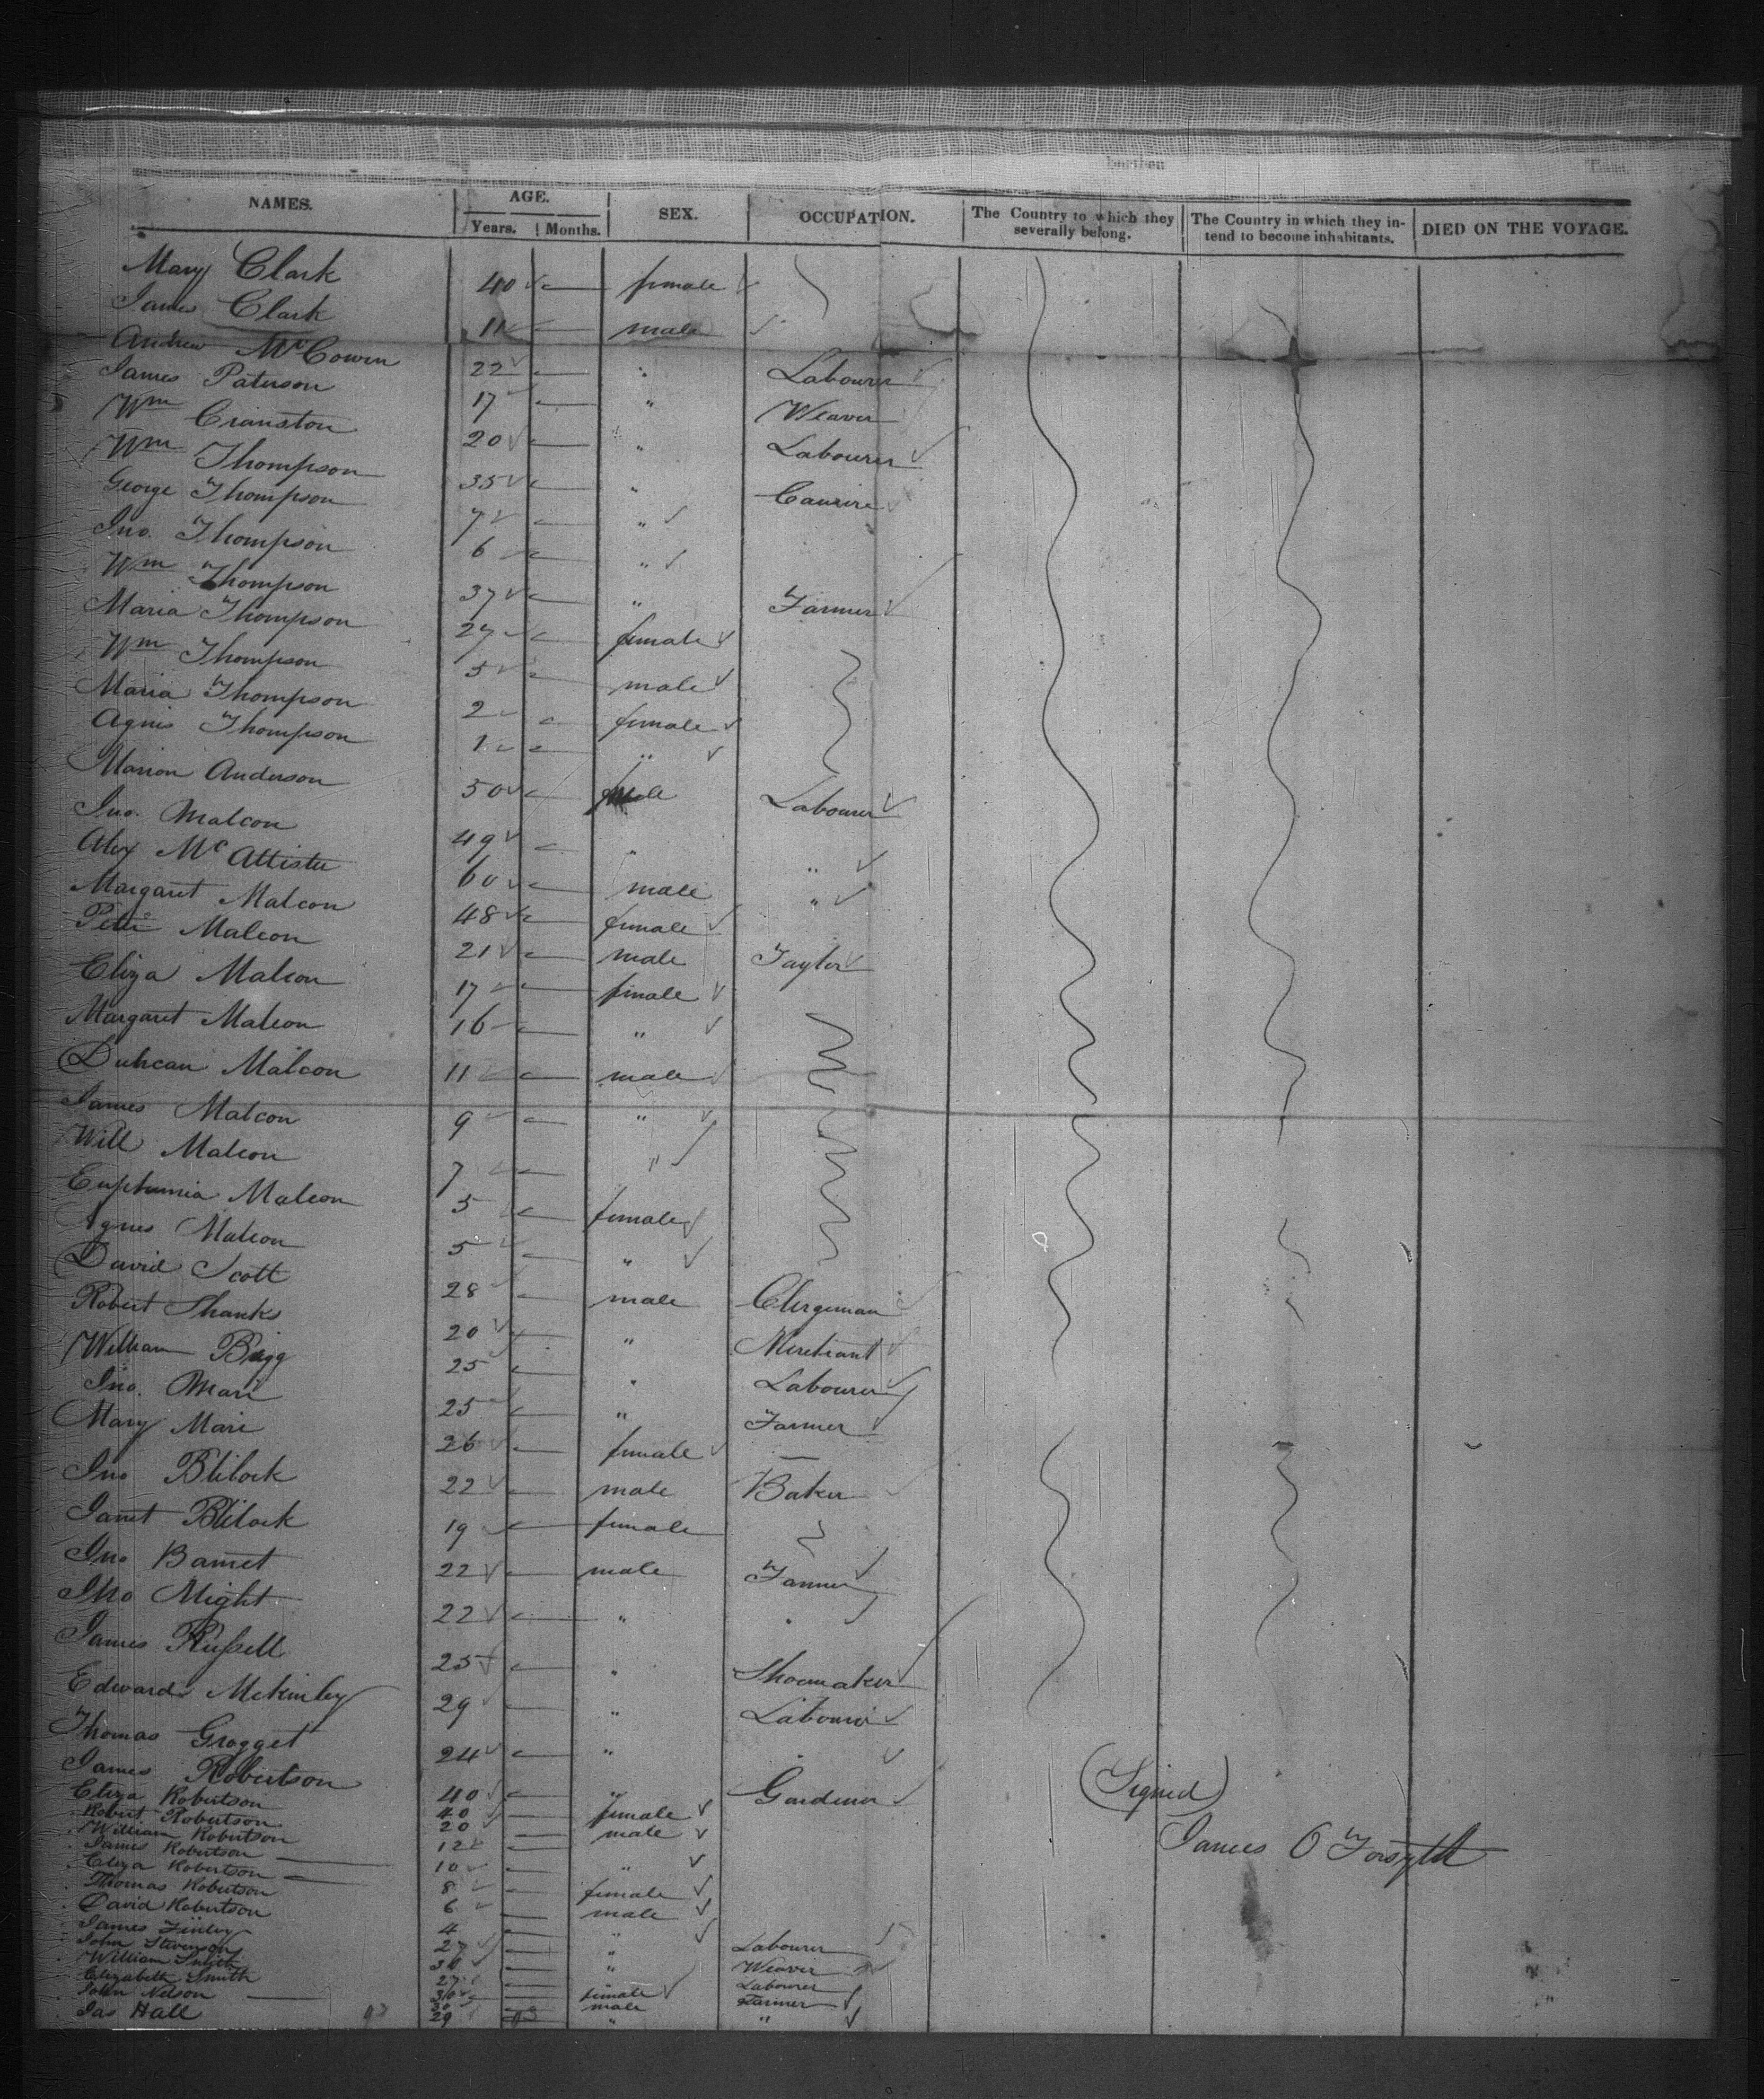 NAMES. AGE. SEX. OCCUPATION. The Country to which they severally belong. The Country in which they intend to become inhabitants. DIED ON THE VOYAGE.
Years. Months.
Mary Clark 40 female
James Clark 11 male
Andrew McCowen 22 " Labourer
James Paterson 17 " Weaver
Wm Cranston 20 " Labourer
Wm Thompson 35 "
George Thompson 7 "
Jno. Thompson 6 "
Wm Thompson 37 " Farmer
Maria Thompson 27 female
Wm Thompson 5 male
Maria Thompson 2 female
Agnis Thompson 1 "
Marion Anderson 50 Labourer
Jno. Malcon 49 " "
Alex McAttister 60 male "
Margaret Malcon 48 female
Peter Malcon 21 male Taylor
Eliza Malcon 17 female
Margaret Malcon 16 "
Duncan Malcon 11 male
James Malcon 9 "
Will Malcon 7 "
Euphemia Malcon 5 female
Agnes Malcon 5 "
David Scott 28 male Clergeman
Robert Shanks 20 " Merchant
William Bigg 25 " Labourer
Jno. Mare 25 " Farmer
Mary Mare 26 female
Jno Blilock 22 male Baker
Janet Blilock 19 female
Jno Barnet 22 male Farmer
Jno Might 22 " "
James Russell 25 " Shoemaker
Edward McKinley 29 " Labourer
Thomas Grogget 24 "
James Robertson 40 " Gardener
Eliza Robertson 40 female
Robert Robertson 20 male
William Robertson 12
James Robertson 10 "
Eliza Robertson 8 female
Thomas Robertson 6 male
David Robertson 4 "
James Finley 27 " Labourer
John Stevenson Weaver
William 27 Labourer
Elizabeth Smith 30 female
John Nelson 30 male Farmer
Jas Hall 29 " "
(Signed)
James O Forsyth